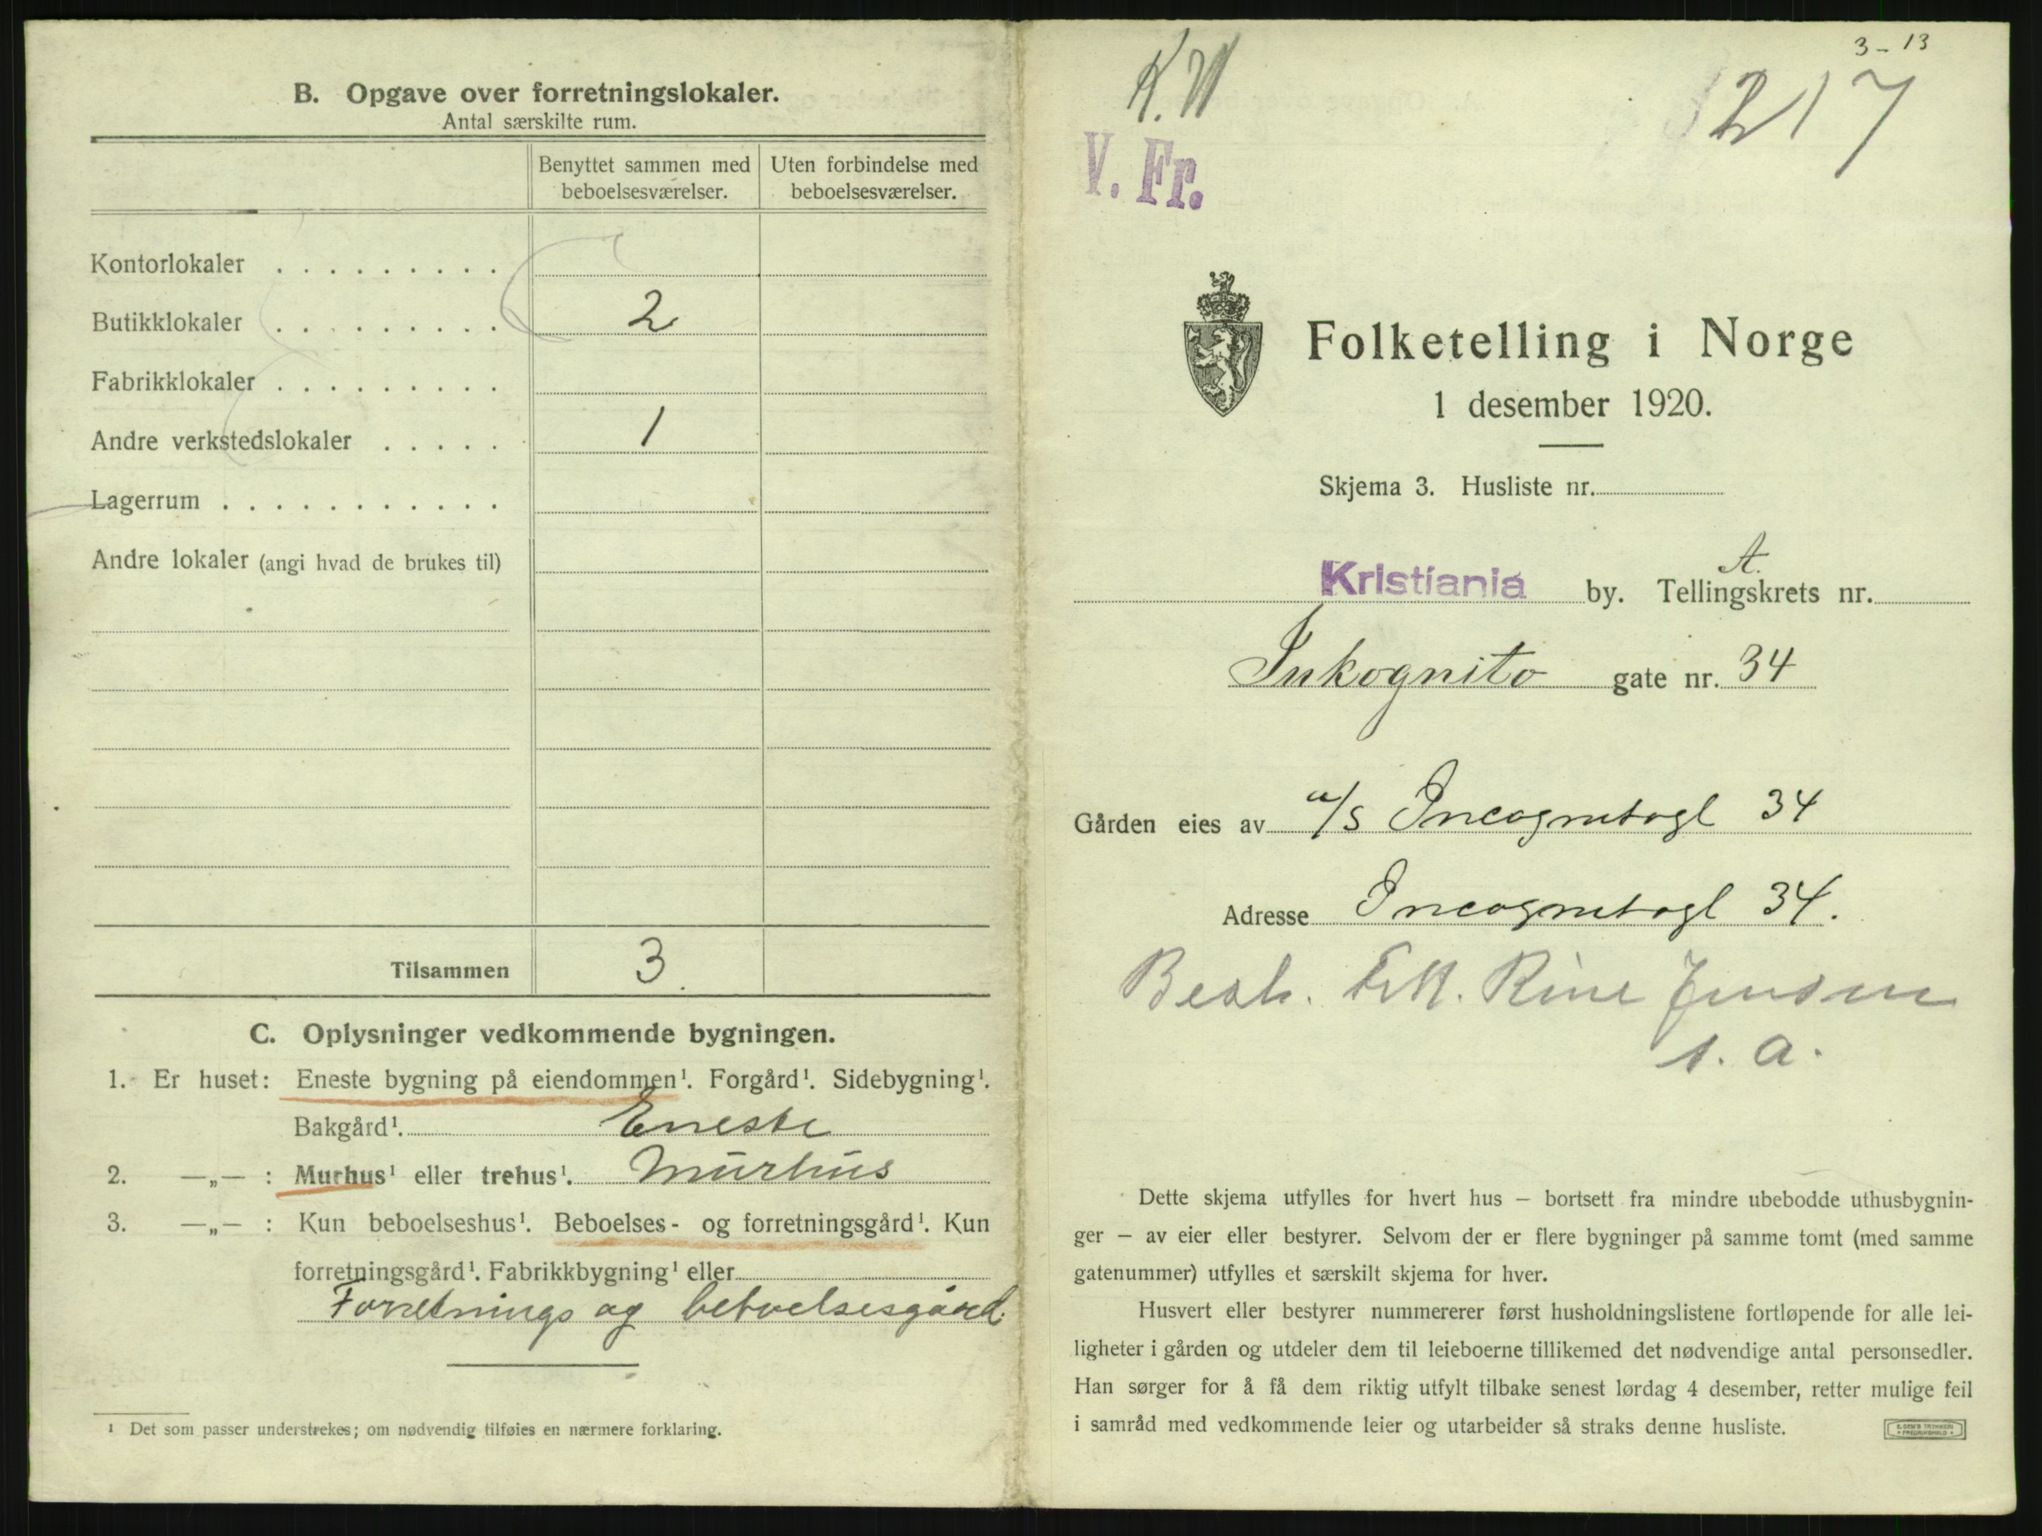 B. Opgave over forretningslokaler.
Antal særskilte rum.
Benyttet sammen med beboelsesværelser.
Uten forbindelse med beboelsesværelser.
Kontorlokaler . . . . . . . . .
Butikklokaler . . . . . . . . . 2
Fabrikklokaler . . . . . . . . .
Andre verkstedslokaler . . . . . 1
Lagerrum . . . . . . . . . . . .
Andre lokaler (angi hvad de brukes til)
Tilsammen 3
C. Oplysninger vedkommende bygningen.
1. Er huset: Eneste bygning på eiendommen¹. Forgård¹. Sidebygning¹.
Bakgård¹. Eneste
2. —„— : Murhus¹ eller trehus¹. Murhus
3. —„— : Kun beboelseshus¹. Beboelses- og forretningsgård¹. Kun
forretningsgård¹. Fabrikkbygning¹ eller
Forretnings og beboelsesgård.
¹ Det som passer understrekes; om nødvendig tilføies en nærmere forklaring.
3-13
217
V. Fr.
Folketelling i Norge
1 desember 1920.
Skjema 3. Husliste nr.
A.
Kristiania by. Tellingskrets nr.
Inkognito gate nr. 34
Gården eies av a/s Incognitogt 34
Adresse Incognitogt 34.
Jensen
s. a.
Dette skjema utfylles for hvert hus – bortsett fra mindre ubebodde uthusbygnin-
ger – av eier eller bestyrer. Selvom der er flere bygninger på samme tomt (med samme
gatenummer) utfylles et særskilt skjema for hver.
Husvert eller bestyrer nummererer først husholdningslistene fortløpende for alle lei-
ligheter i gården og utdeler dem til leieboerne tillikemed det nødvendige antal personsedler.
Han sørger for å få dem riktig utfylt tilbake senest lørdag 4 desember, retter mulige feil
i samråd med vedkommende leier og utarbeider så straks denne husliste.